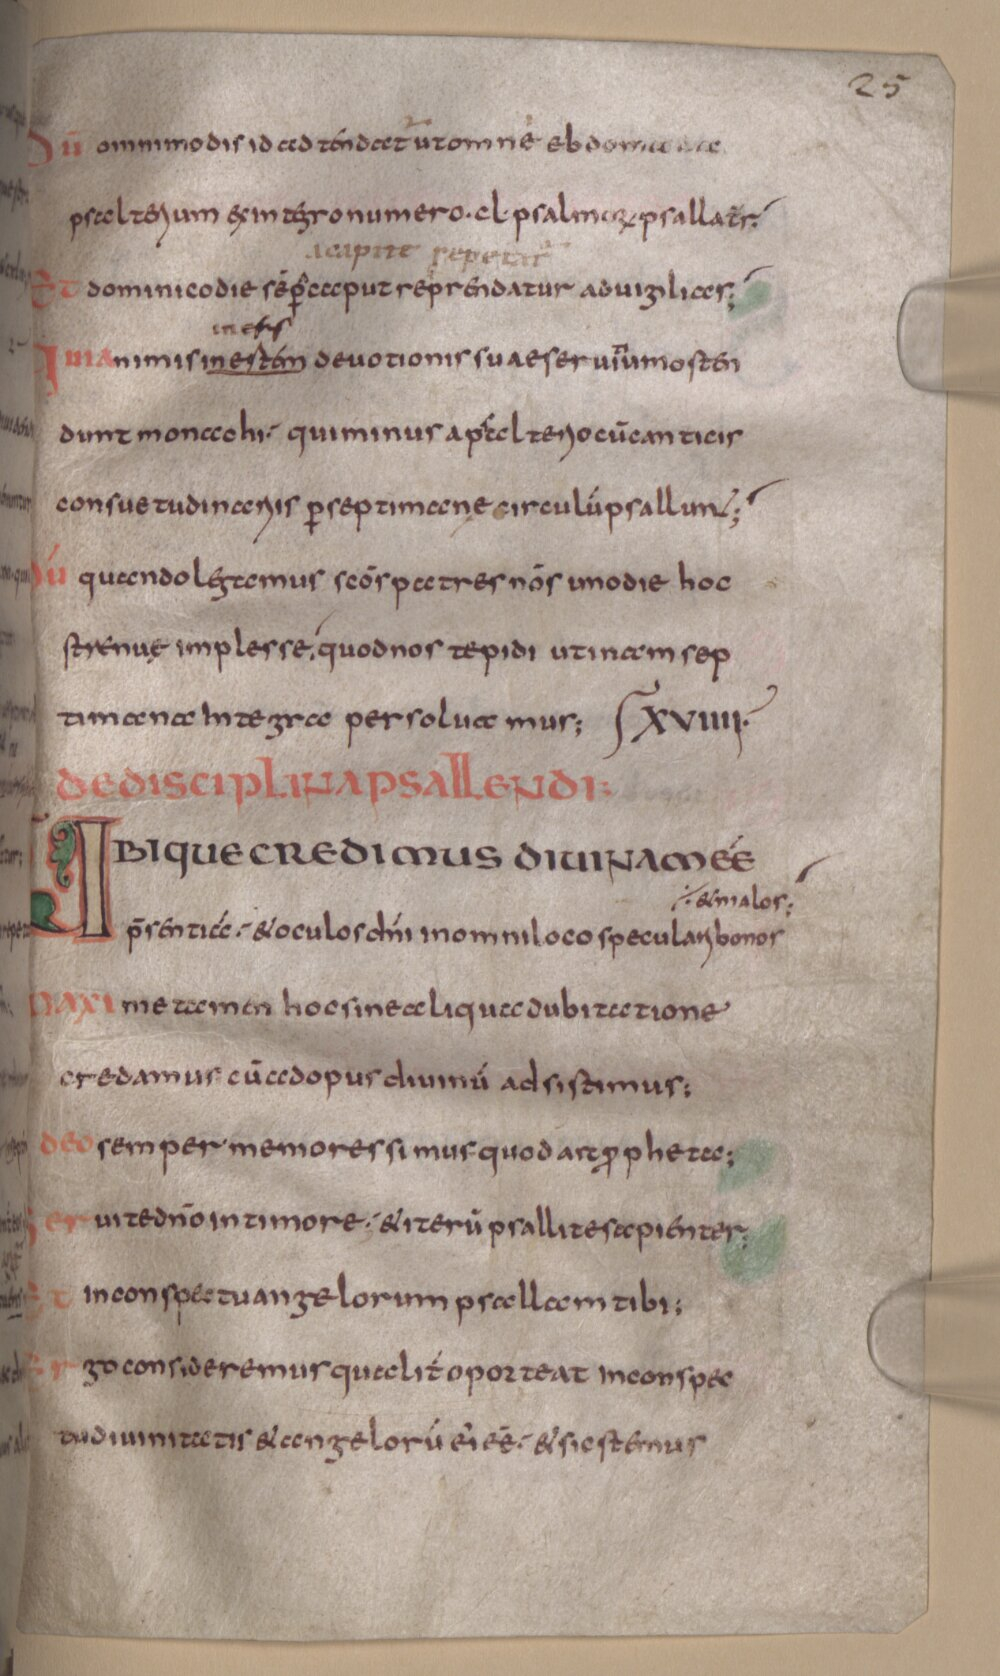 25
Dū omnimodis id adtendatur ut omne ebdomada
psalterium ex integro numero·cl·psalmorum psallatur;
a capite repetatur
Et dominico die sēp caput reprendatur ad uigilias;
iners
Quia nimis inestem deuotionis suae seruitium osten
dunt monachi· qui minus a psalterio cū canticis
consuetudinariis p septimanę circulū psallunt;
Dū quando legamus scōs patres nōs uno die hoc
strenuę implesse, quod nos tepidi utinam sep
timana integra persoluamus; XVIIII·
DE DISCIPLINA PSALLENDI:
UBIQUE CREDIMUS DIUINAM EĒ
·⁊ malos;
p̄sentiā·& oculos dn̄i in omni loco speculari bonos
Maxime tamen hoc sine aliqua dubitatione
credamus cū ad opus diuinū adsistimus;
Ideo semper memores simus quod ait ꝓpheta;
Seruite dn̄o in timore·& iterū psallite sapienter;
Et in conspectu angelorum psallam tibi;
Ergo consideremus qualit̄ oporteat in conspec
tu diuinitatis & angelorū ei eē·& sic stemus